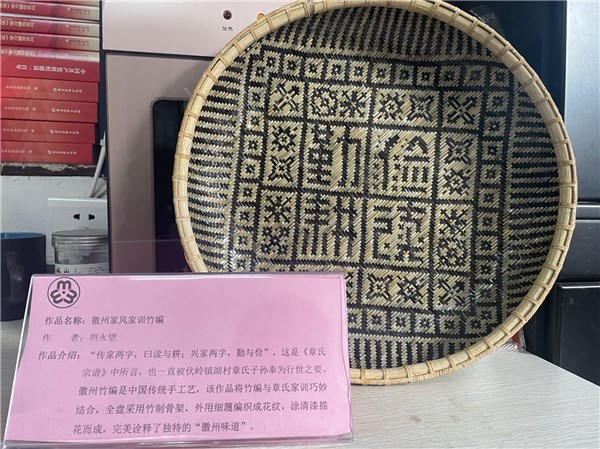 加热
中国共产党组织建设一百年
勤 俭
耕 读
作品名称：徽州家风家训竹编
作 者：胡永望
作品介绍：“传家两字，曰读与耕；兴家两字，勤与俭”，这是《章氏
宗谱》中所言，也一直被伏岭镇湖村章氏子孙奉为行世之要。
徽州竹编是中国传统手工艺，该作品将竹编与章氏家训巧妙
结合，全盘采用竹制骨架，外用细篾编织成花纹，涂清漆描
花而成，完美诠释了独特的“徽州味道”。